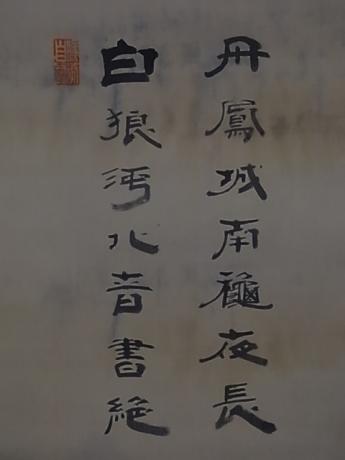 丹鳳城南龝夜長
白狼河北音書絶